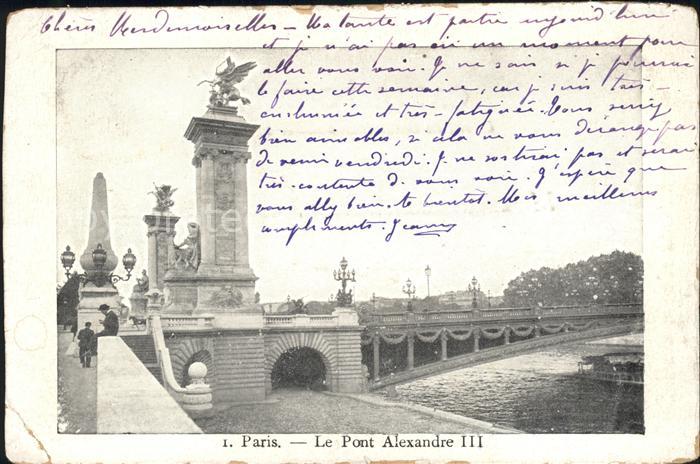 Chères Mesdemoiselles – Ma tante est partie aujourd'hui
et je n'ai pas eu un moment pour
aller vous voir. Je ne sais si je pourrai
le faire cette semaine, car je suis très-
enrhumée et très-fatiguée. Vous seriez
bien aimables, si cela ne vous dérange pas
de venir vendredi. Je ne sortirai pas et serai
très-contente de vous voir. J'espère que
vous allez bien. A bientôt. Mes meilleurs
compliments. Jeanne
1. Paris. — Le Pont Alexandre III